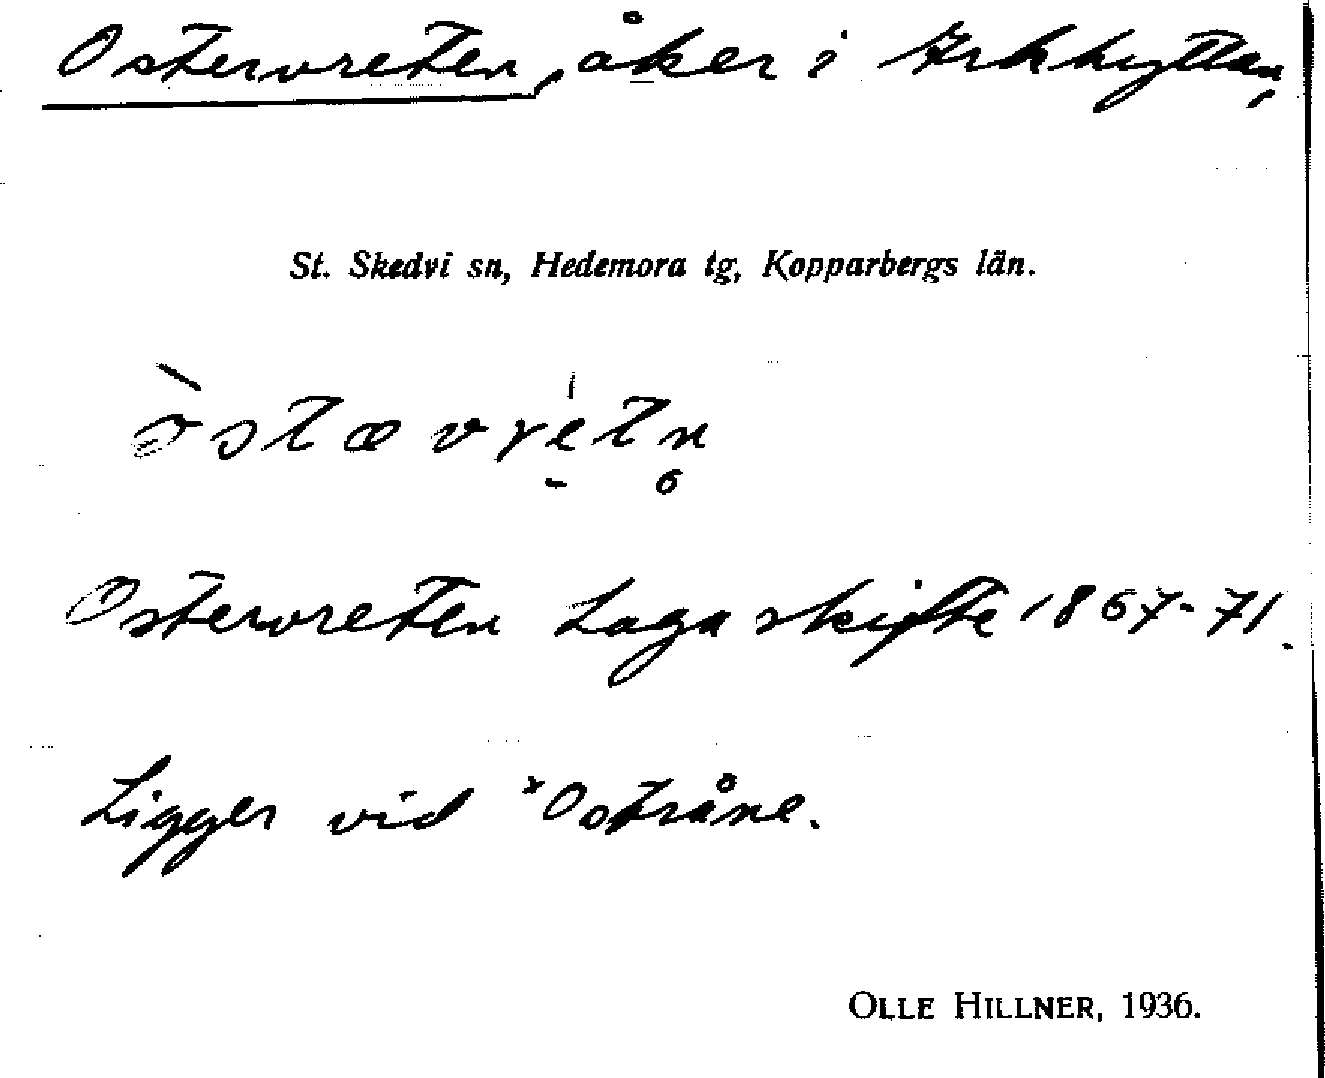 Ostervreten, åker i Arkhyttan,
St. Skedvi sn, Hedemora tg, Kopparbergs län.
òstævre̱tn̥
Ostervreten Laga skifte 1867-71.
Ligger vid ˣOstråne.
OLLE HILLNER, 1936.